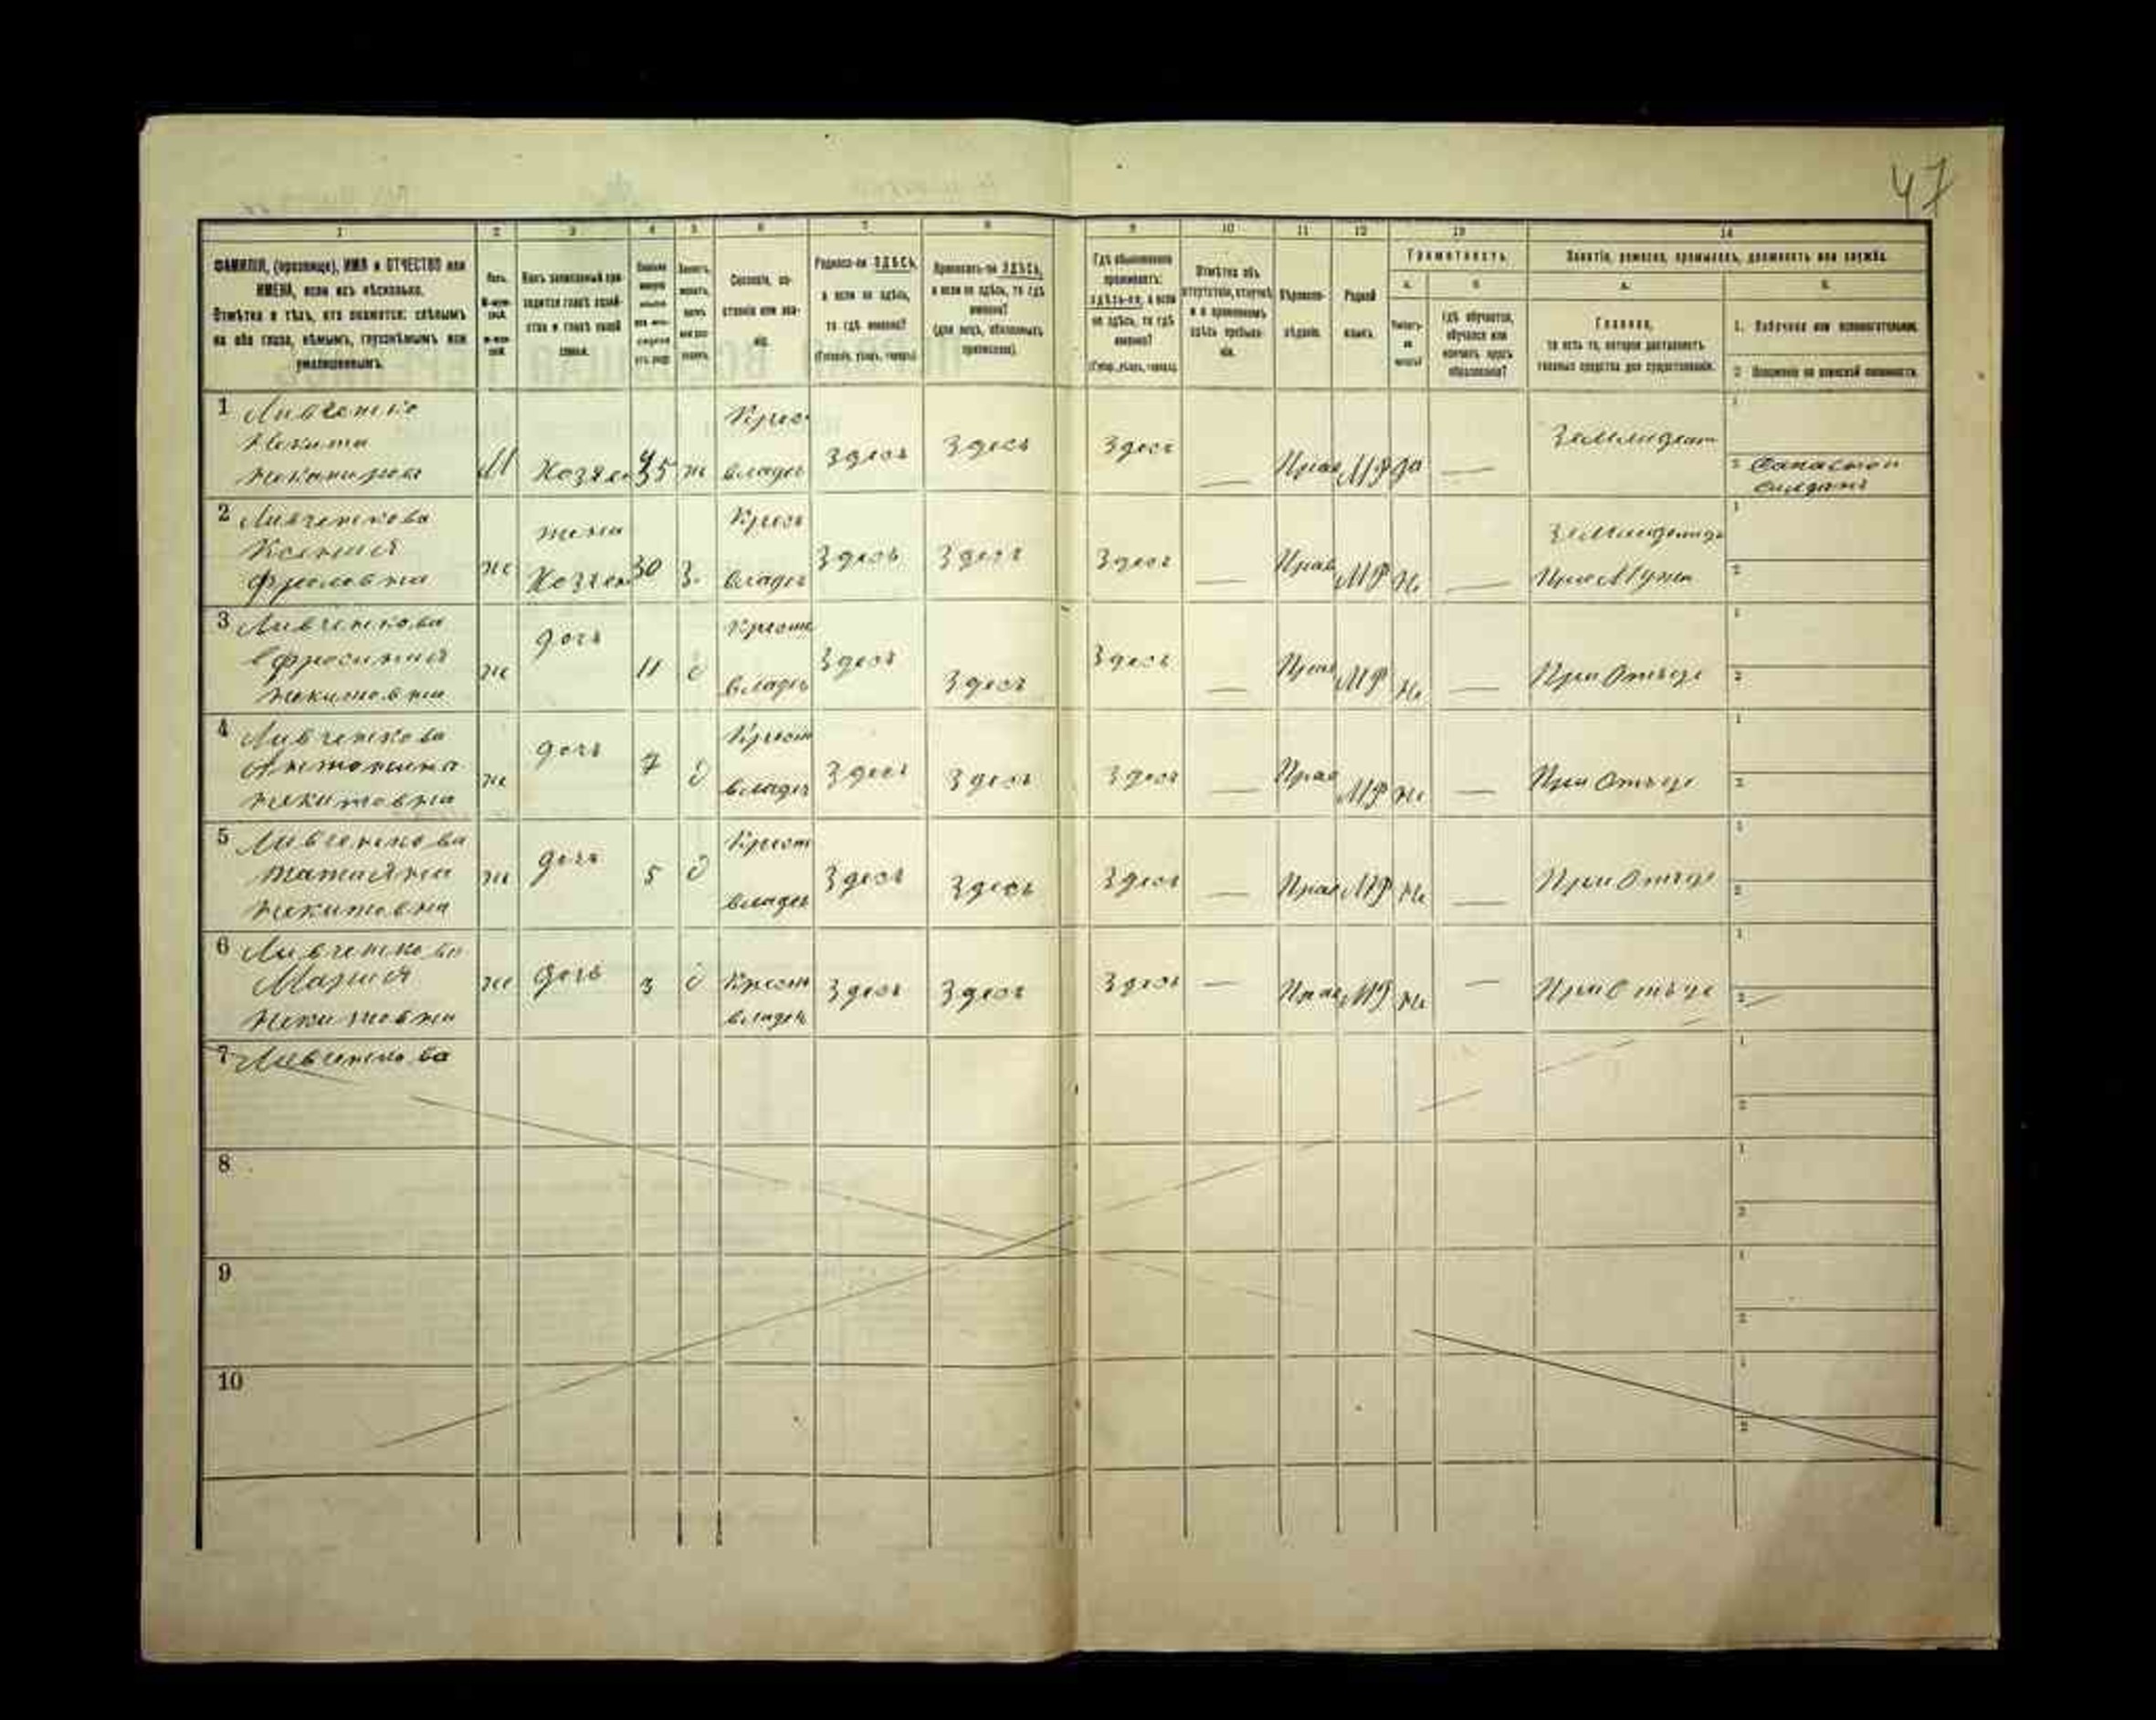 47
1 2 3 4 5 6 7 8 9 10 11 12 13 14
ФАМИЛІЯ, (прозвище), ИМЯ и ОТЧЕСТВО или
ИМЕНА, если ихъ нѣсколько.
Отмѣтка о тѣхъ, кто окажется: слѣпымъ
на оба глаза, нѣмымъ, глухонѣмымъ или
умалишеннымъ.
Полъ.
Какъ записанный при-
ходится главѣ хозяй-
ства и главѣ своей
семьи.
Сословіе, со-
стояніе или зва-
ніе.
Родился-ли ЗДѢСЬ,
а если не здѣсь,
то гдѣ именно?
(Губернія, уѣздъ, городъ).
Приписанъ-ли ЗДѢСЬ,
а если не здѣсь, то гдѣ
именно?
(для лицъ, обязанныхъ
припискою).
Гдѣ обыкновенно
проживаетъ:
здѣсь-ли, а если
не здѣсь, то гдѣ
именно?
(Губер., уѣздъ, городъ).
Отмѣтка объ
отсутствіи, отлучкѣ
и о временномъ
здѣсь пребыва-
ніи.
Вѣроиспо-
вѣданіе.
Родной
языкъ.
Грамотность.
а. б.
Гдѣ обучается,
обучался или
кончилъ курсъ
образованія?
Занятіе, ремесло, промыселъ, должность или служба.
а.
Главное,
то есть то, которое доставляетъ
главныя средства для существованія.
б.
1. Побочное или вспомогательное.
2. Положеніе по воинской повинности.
1 Ливченко
Никита
М Хозяин 35 ж Крес владел Здесь Здесь Здесь — Прав МР да —
1
2
2 Ливченкова
Ксения
Фроловна
же жена
Хозяи 30 З. Крес владел Здесь Здесь Здесь — Прав МР Не —
При Мужи
1
2
3 Ливченкова
Ефросиния
Никитовна
же дочь 11 д Крест владел Здесь Здесь Здесь — Прав МР Не — При Отъце
1
2
4 Ливченкова
Антонина
Никитовна
же дочь 7 д Крест владел Здесь Здесь Здесь — Прав МР Не — При Отъце
1
2
5 Ливченкова
Татияна
Никитовна
же дочь 5 д Крест владел Здесь Здесь Здесь — Прав МР Не — При Отъце
1
2
6 Ливченкова
Мария
Никитовна
же дочь 3 д Крест владел Здесь Здесь Здесь — Прав МР Не — При Отъце
1
2
7 Ливченкова
1
2
8
1
2
9
1
2
10
1
2